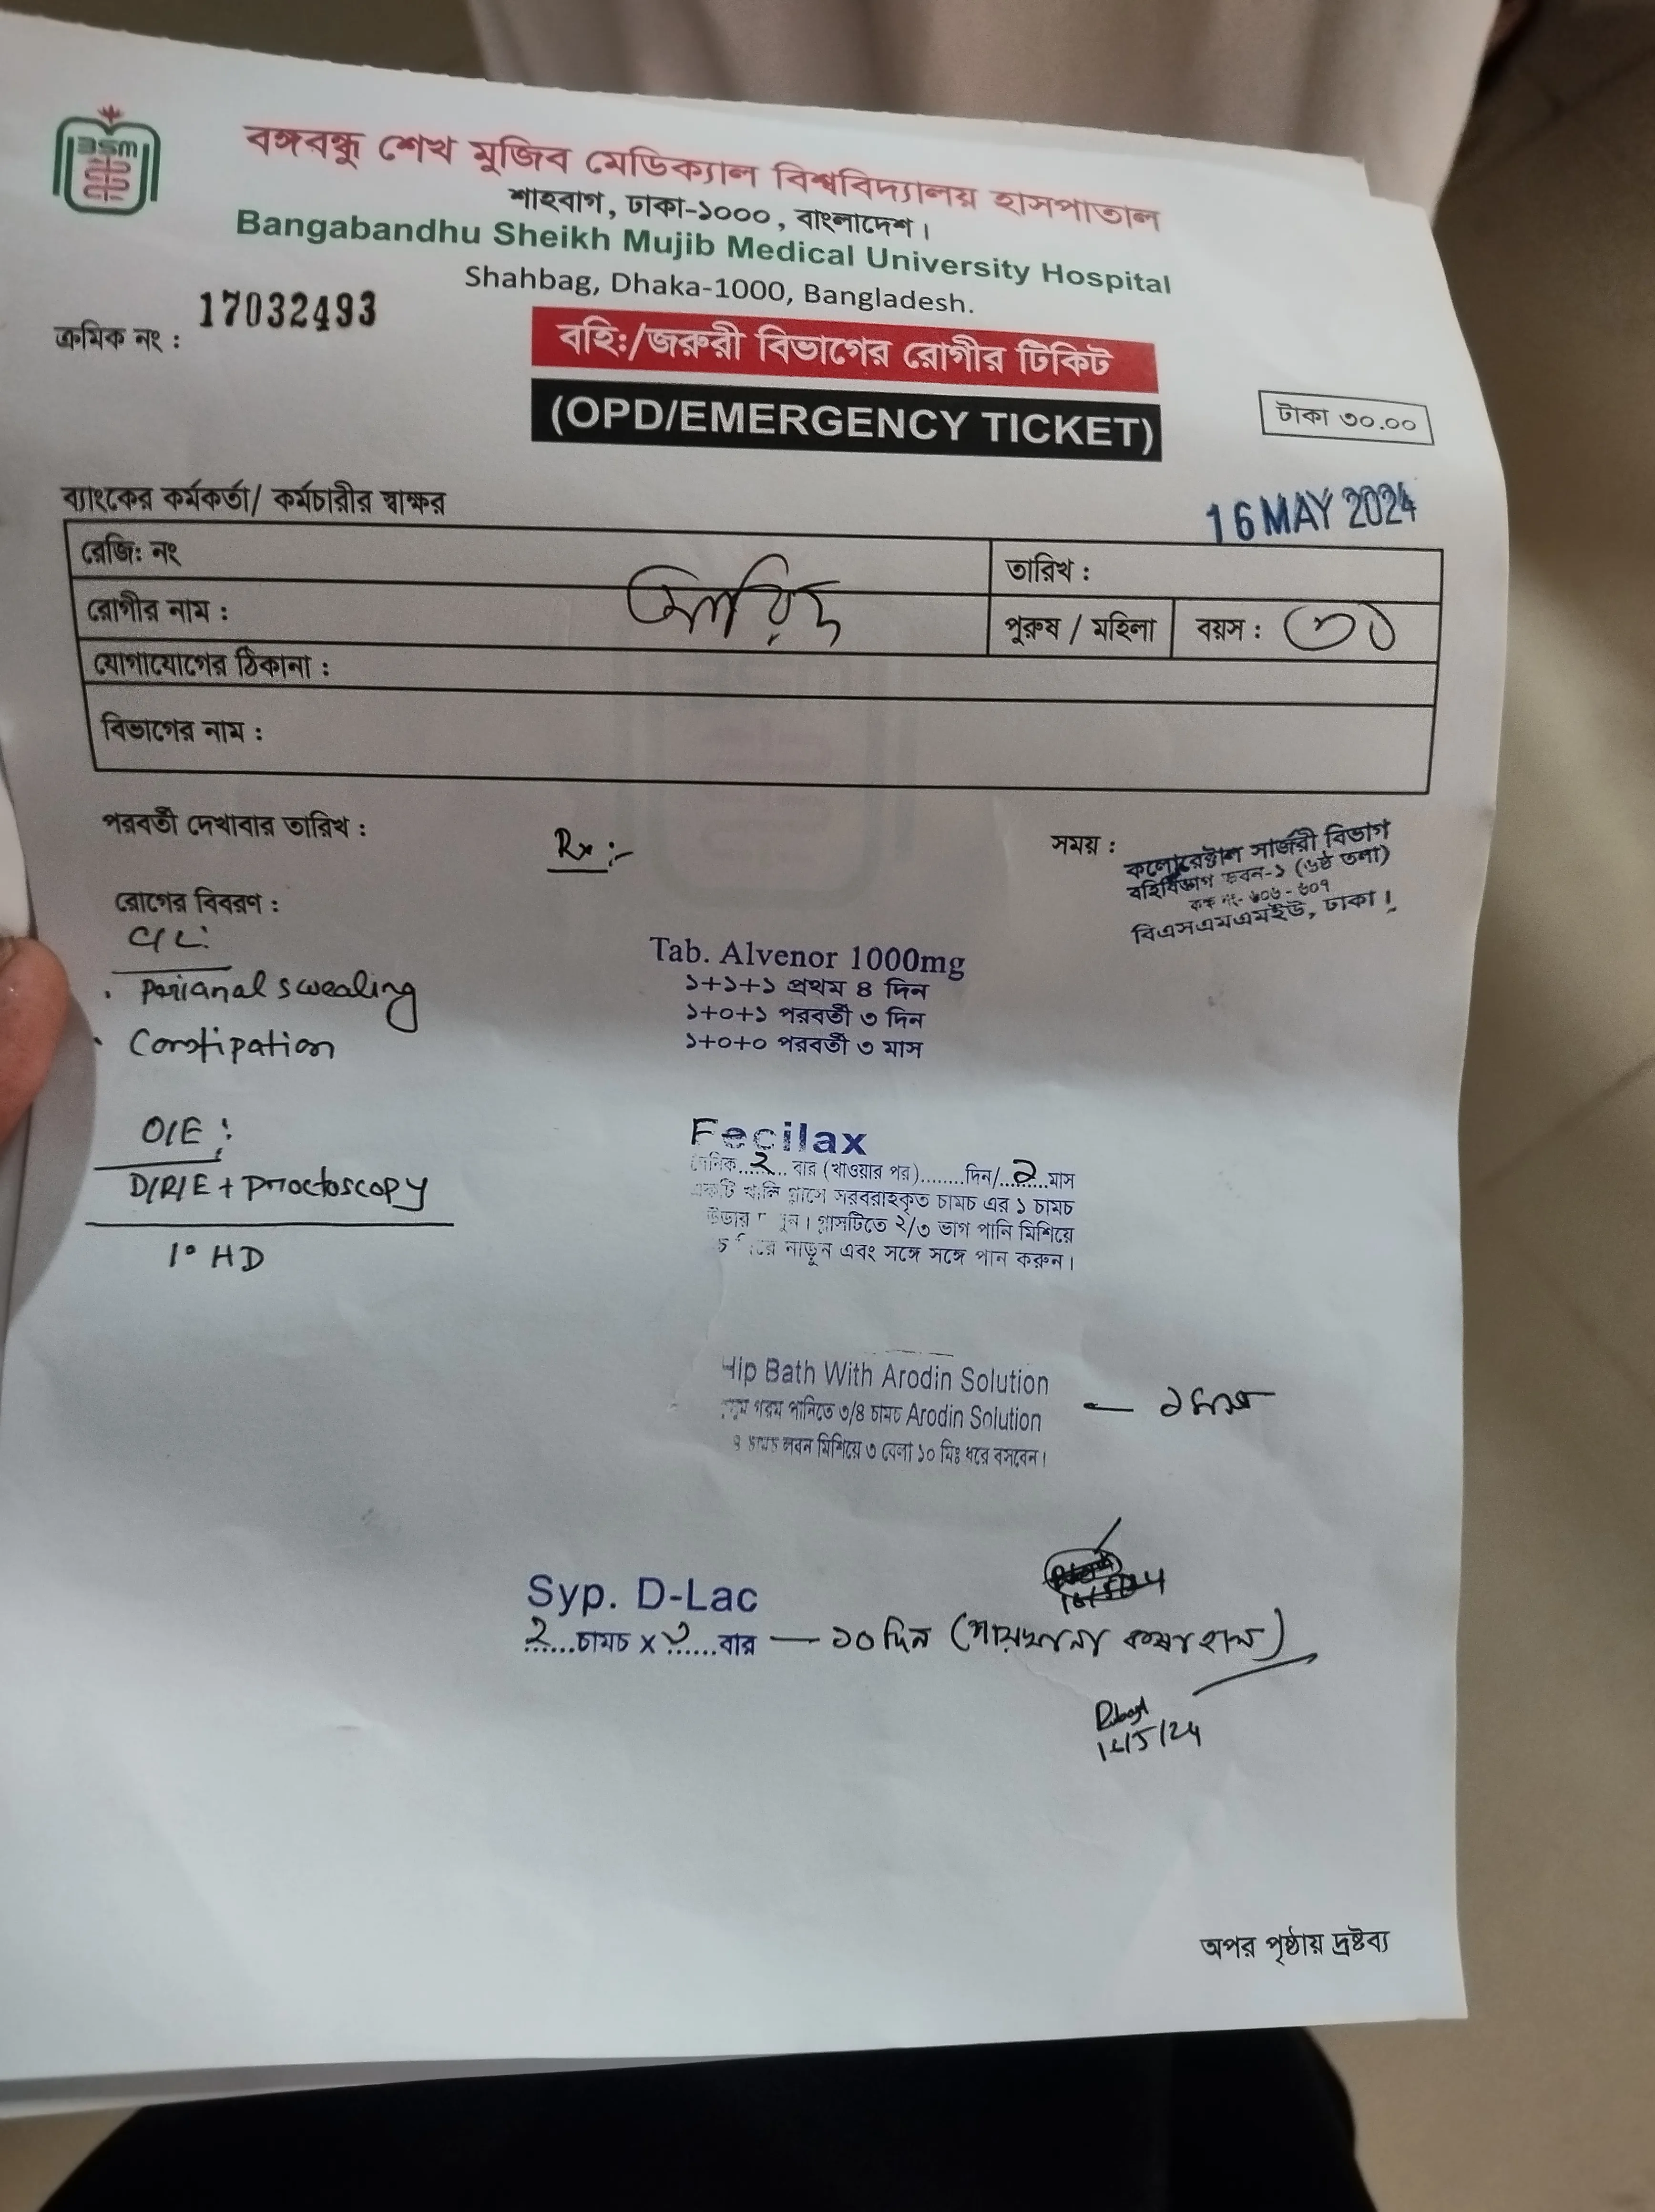 BSM
বঙ্গবন্ধু শেখ মুজিব মেডিক্যাল বিশ্ববিদ্যালয় হাসপাতাল
শাহবাগ, ঢাকা-১০০০, বাংলাদেশ।
Bangabandhu Sheikh Mujib Medical University Hospital
Shahbag, Dhaka-1000, Bangladesh.
ক্রমিক নং : 17032493
বহিঃ/জরুরী বিভাগের রোগীর টিকিট
(OPD/EMERGENCY TICKET)
টাকা ৩০.০০
ব্যাংকের কর্মকর্তা/ কর্মচারীর স্বাক্ষর
16 MAY 2024
রেজি: নং
তারিখ :
রোগীর নাম :
পুরুষ / মহিলা
বয়স : ৩১
যোগাযোগের ঠিকানা :
বিভাগের নাম :
পরবর্তী দেখাবার তারিখ :
Rx :-
সময় :
কলোরেক্টাল সার্জরী বিভাগ
বহির্বিভাগ ভবন-১ (৬ষ্ঠ তলা)
কক্ষ নং- ৬০৬ - ৬০৭
বিএসএমএমইউ, ঢাকা।
রোগের বিবরণ :
C/C:
. Perianal swealing
. Constipation
O/E :
D/R/E + Proctoscopy
1° HD
Tab. Alvenor 1000mg
১+১+১ প্রথম ৪ দিন
১+০+১ পরবর্তী ৩ দিন
১+০+০ পরবর্তী ৩ মাস
Fecilax
২ বার (খাওয়ার পর)........দিন/..২..মাস
খালি গ্লাসে সরবরাহকৃত চামচ এর ১ চামচ
গ্লাসটিতে ২/৩ ভাগ পানি মিশিয়ে
নাড়ুন এবং সঙ্গে সঙ্গে পান করুন।
Hip Bath With Arodin Solution
গরম পানিতে ৩/৪ চামচ Arodin Solution
চামচ লবন মিশিয়ে ৩ বেলা ১০ মিঃ ধরে বসবেন।
Syp. D-Lac
২...চামচ x ৩...বার — ১০ দিন (পায়খানা কষা হলে)
অপর পৃষ্ঠায় দ্রষ্টব্য